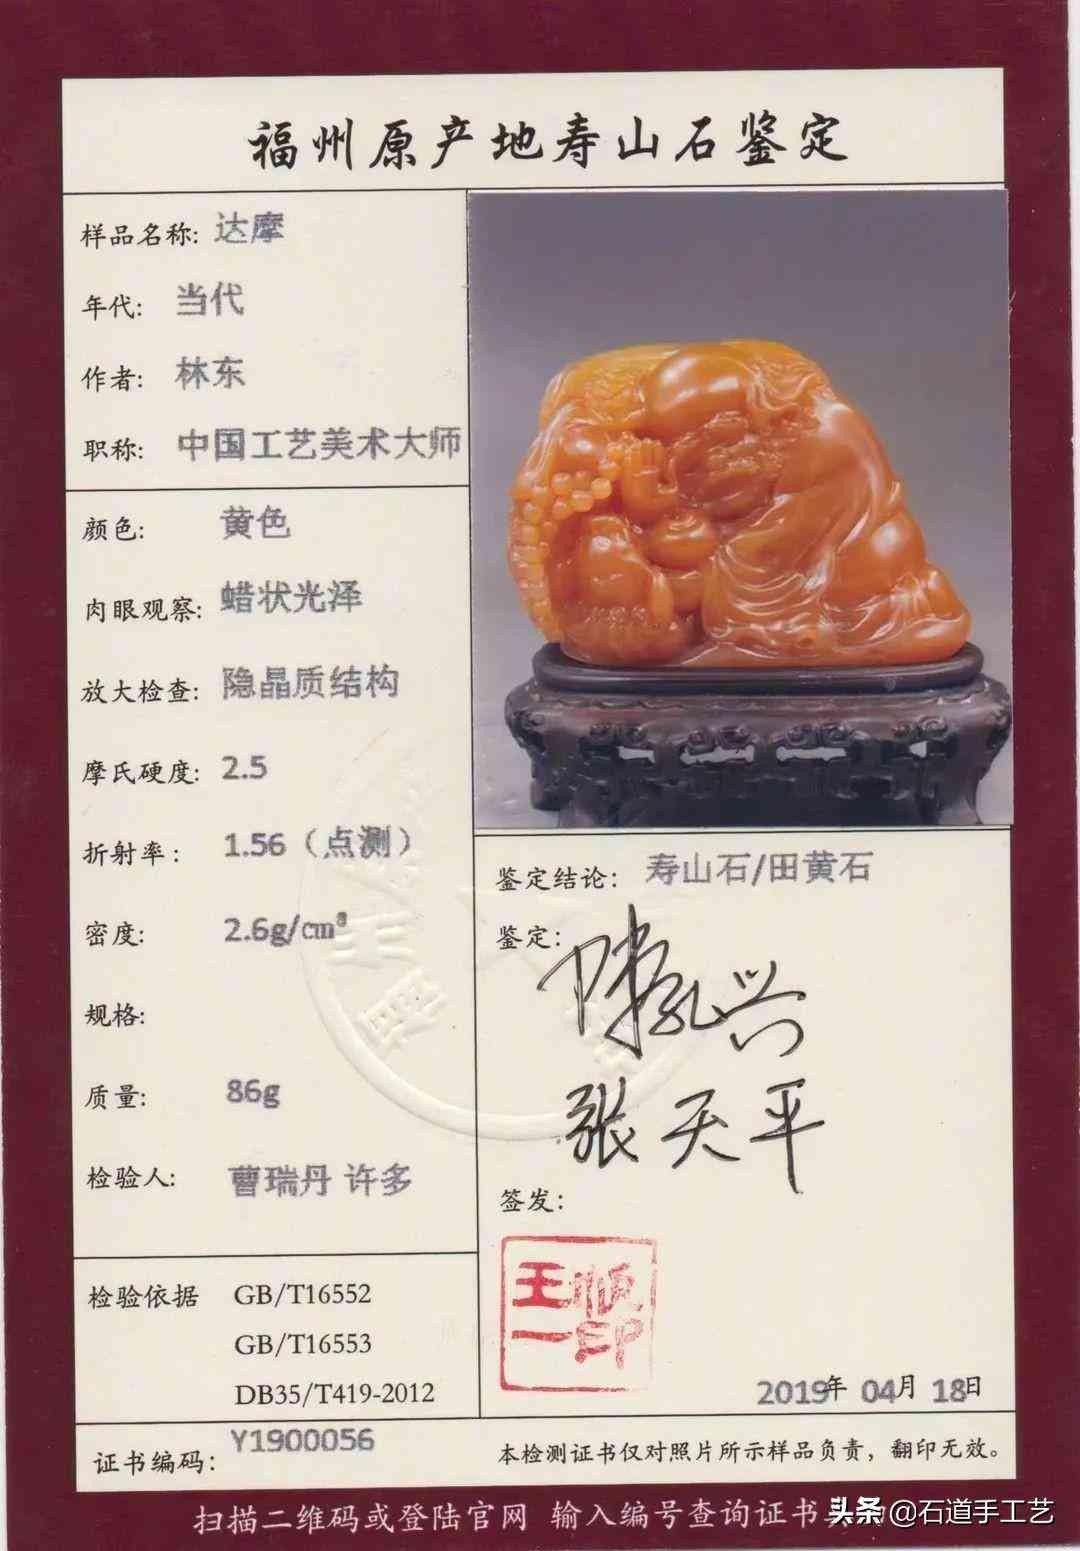 福州原产地寿山石鉴定
样品名称: 达摩
年代: 当代
作者: 林东
职称: 中国工艺美术大师
颜色: 黄色
肉眼观察: 蜡状光泽
放大检查: 隐晶质结构
摩氏硬度: 2.5
折射率: 1.56（点测）
密度: 2.6g/cm³
规格:
质量: 86g
检验人: 曹瑞丹 许多
检验依据 GB/T16552
GB/T16553
DB35/T419-2012
鉴定结论: 寿山石/田黄石
鉴定:
张天平
签发:
王
一印
2019年 04月 18日
证书编码: Y1900056
本检测证书仅对照片所示样品负责，翻印无效。
扫描二维码或登陆官网 输入编号查询证书
头条 @石道手工艺